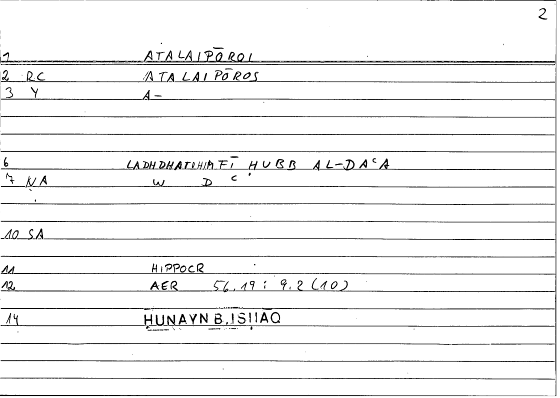 2
1 ATALAIPŌROI
2 RC ATALAIPŌROS
3 Y A-
6 LADHDHATUHUM FĪ ḤUBB AL-DAʿA
7 NA W D ʿ
10 SA
11 HIPPOCR
12 AER 56.19 : 9.2 (10)
14 ḤUNAYN B. ISḤĀQ